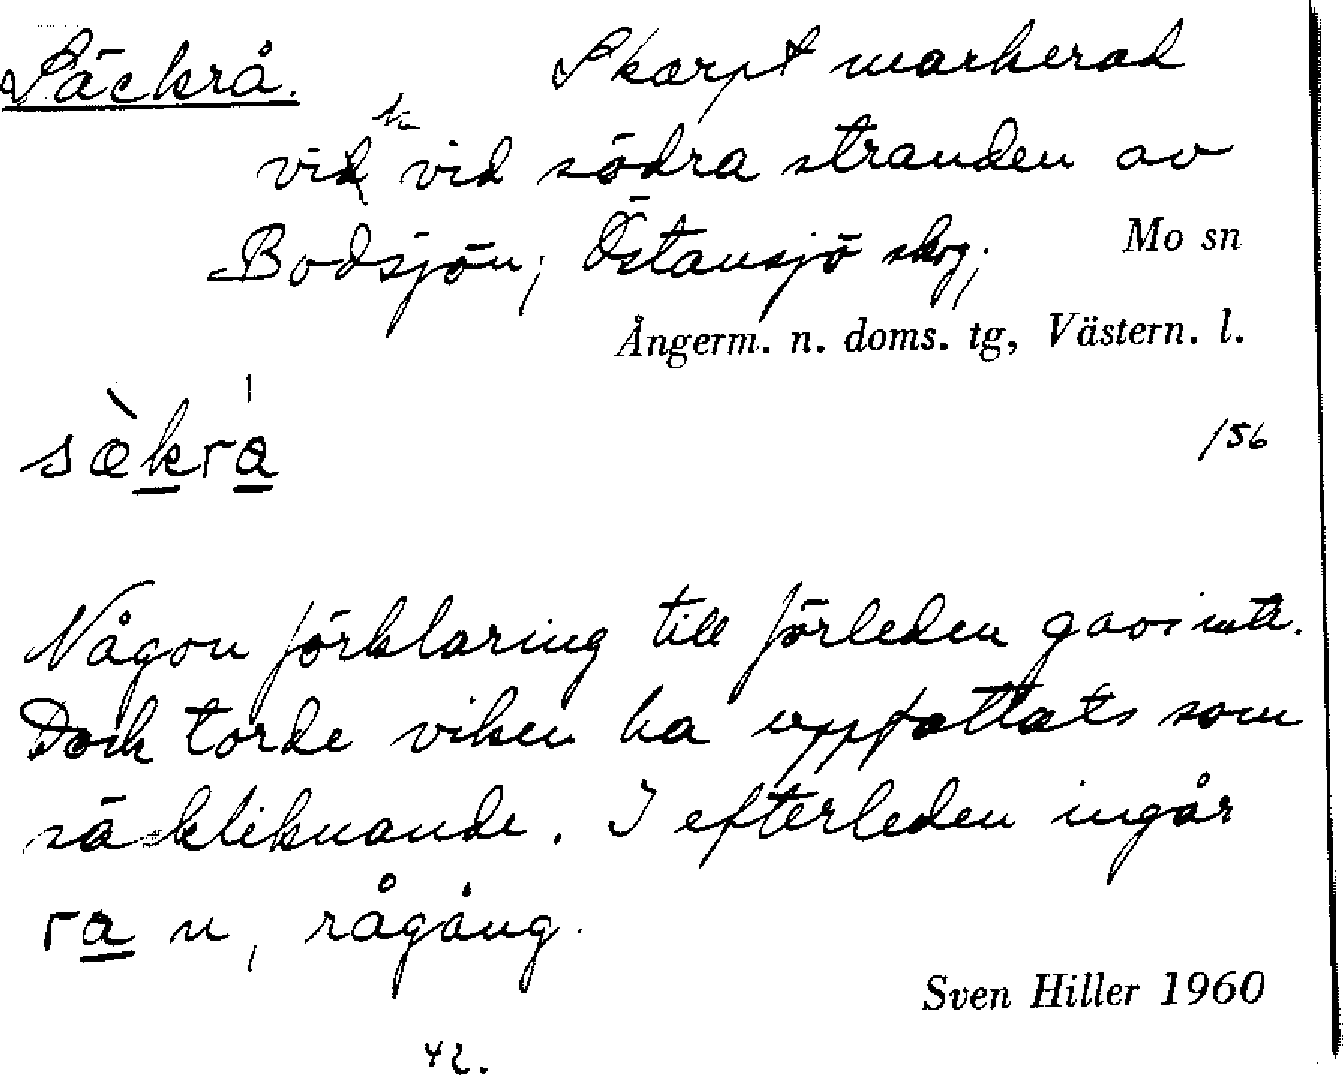 Säckrå. Skarpt markerad
vik vid södra stranden av
Bodsjön; Östansjö skog;
Mo sn
Ångerm. n. doms. tg, Västern. l.
sækra
/56
Någon förklaring till förleden gavs inte.
Dock torde viken ha uppfattats som
säckliknande. I efterleden ingår
ra n, rågång.
Sven Hiller 1960
42.